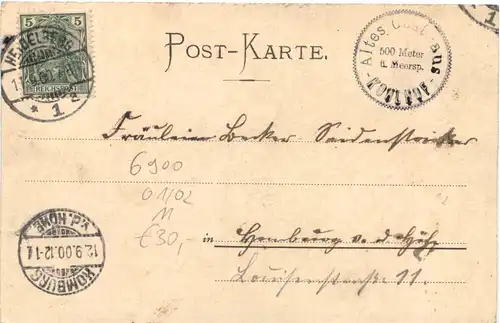 5 5
HEIDELBERG
REICHSPOST
* 1 a
POST-KARTE.
Altes
500 Meter
ü. Meersp.
Fräulein Becker Seidenstricker
6900
01/02
M
€30,-
in Homburg v. d. Höhe
Louisenstraße 11.
HOMBURG
12.9.00.12-1
v.d. HÖHE